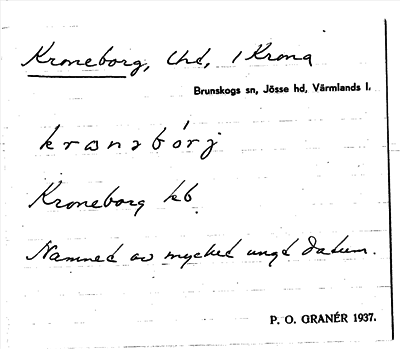 Kroneborg, lhd, i Krona
Brunskogs sn, Jösse hd, Värmlands l.
Kroneborg kb
Namnet av mycket ungd datum.
P. O. GRANÉR 1937.